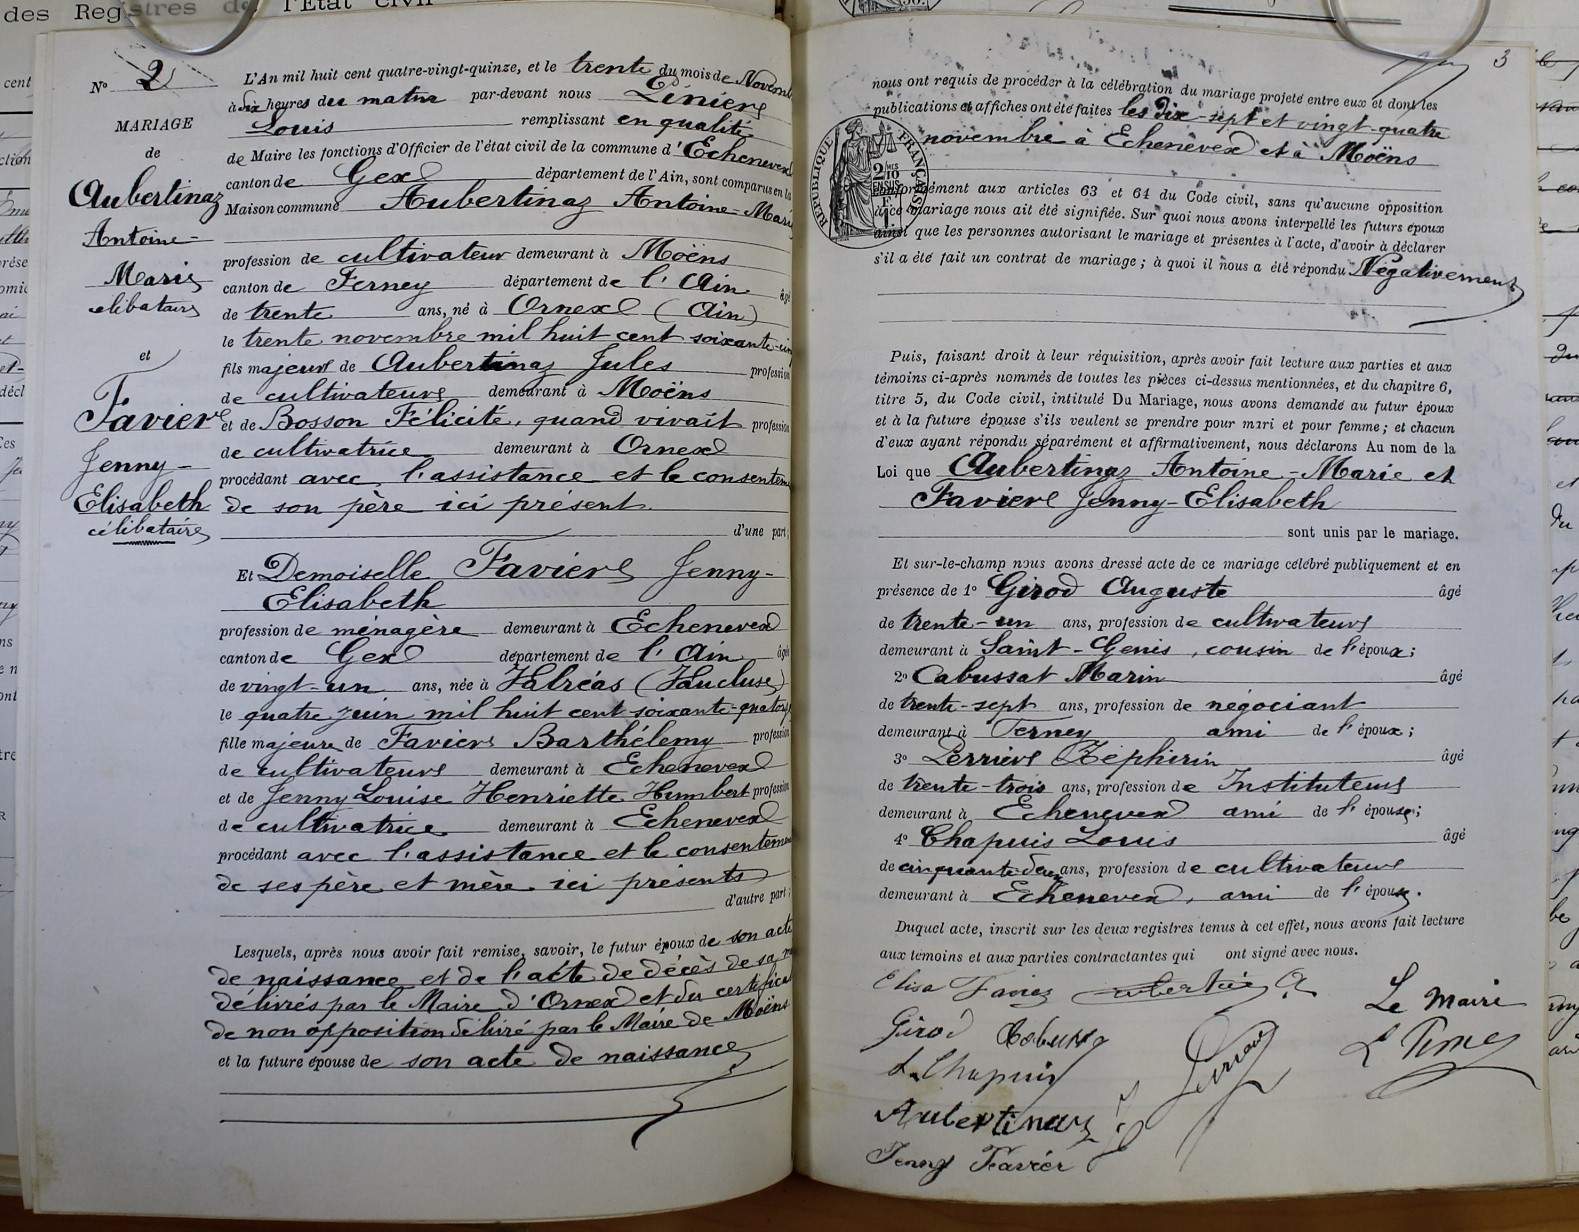 des Registres de l'État civil
N° 2
MARIAGE
de
Aubertinaz
Antoine-
Marie
célibataire
et
Favier
Jenny-
Elisabeth
célibataire
L'An mil huit cent quatre-vingt-quinze, et le trente du mois de Novemb
à dix heures du matin par-devant nous Pinier
Louis remplissant en qualité
de Maire les fonctions d'Officier de l'état civil de la commune d'Echenevex
canton de Gex département de l'Ain, sont comparus en la
Maison commune Aubertinaz Antoine-Marie
profession de cultivateur demeurant à Moëns
canton de Ferney département de l'Ain âgé
de trente ans, né à Ornex (Ain)
le trente novembre mil huit cent soixante-cinq
fils majeur de Aubertinaz Jules profession
de cultivateur demeurant à Moëns
et de Bosson Félicité, quand vivait profession
de cultivatrice demeurant à Ornex
procédant avec l'assistance et le consentem
de son père ici présent.
d'une part;
Et Demoiselle Favier Jenny-
Elisabeth
profession de ménagère demeurant à Echenevex
canton de Gex département de l'Ain âgée
de vingt-un ans, née à Valréas (Vaucluse)
le quatre juin mil huit cent soixante-quatorze
fille majeure de Favier Barthélemy profession
de cultivateur demeurant à Echenevex
et de Jenny Louise Henriette Humbert profession
de cultivatrice demeurant à Echenevex
procédant avec l'assistance et le consentemen
de ses père et mère ici présents
d'autre part;
Lesquels, après nous avoir fait remise, savoir, le futur époux de son acte
de naissance et de l'acte de décès de sa m
délivrés par le Maire d'Ornex et du certifica
de non opposition délivré par le Maire de Moëns
et la future épouse de son acte de naissance
3
nous ont requis de procéder à la célébration du mariage projeté entre eux et dont les
publications et affiches ont été faites les dix-sept et vingt-quatre
novembre à Echenevex et à Moëns
RÉPUBLIQUE FRANÇAISE
2/10
EN SUS
conformément aux articles 63 et 64 du Code civil, sans qu'aucune opposition
à ce mariage nous ait été signifiée. Sur quoi nous avons interpellé les futurs époux
ainsi que les personnes autorisant le mariage et présentes à l'acte, d'avoir à déclarer
s'il a été fait un contrat de mariage; à quoi il nous a été répondu Négativement
Puis, faisant droit à leur réquisition, après avoir fait lecture aux parties et aux
témoins ci-après nommés de toutes les pièces ci-dessus mentionnées, et du chapitre 6,
titre 5, du Code civil, intitulé Du Mariage, nous avons demandé au futur époux
et à la future épouse s'ils veulent se prendre pour mari et pour femme; et chacun
d'eux ayant répondu séparément et affirmativement, nous déclarons Au nom de la
Loi que Aubertinaz Antoine-Marie et
Favier Jenny-Elisabeth
sont unis par le mariage.
Et sur-le-champ nous avons dressé acte de ce mariage célébré publiquement et en
présence de 1° Girod Auguste âgé
de trente-un ans, profession de cultivateur
demeurant à Saint-Genis, cousin de l'époux;
2° Cabussat Marin âgé
de trente-sept ans, profession de négociant
demeurant à Ferney ami de l'époux;
3° Perrier Zéphirin âgé
de trente-trois ans, profession de Instituteur
demeurant à Echenevex ami de l'épouse;
4° Chapuis Louis âgé
de cinquante-deux ans, profession de cultivateur
demeurant à Echenevex, ami de l'épouse.
Duquel acte, inscrit sur les deux registres tenus à cet effet, nous avons fait lecture
aux témoins et aux parties contractantes qui ont signé avec nous.
Elisa Favier Aubertinaz A.
Le Maire
Girod Cabussa
L. Chapuis Perrier
Aubertinaz J
Jenny Favier